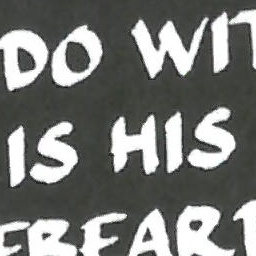 DO WIT
IS HIS
EBEAR